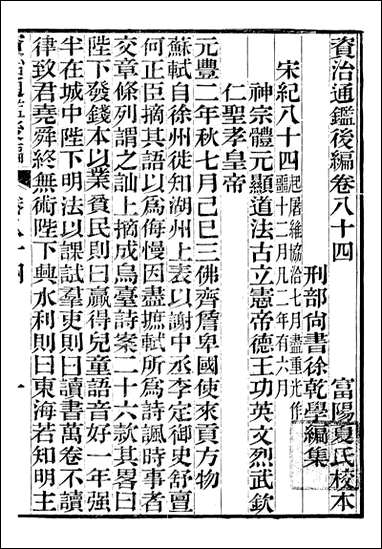 資治通鑑後編卷八十四
富陽夏氏校本
刑部尙書徐乾學編集
宋紀八十四起屠維協洽七月盡重光作噩十二月凡二年有六月
神宗體元顯道法古立憲帝德王功英文烈武欽
仁聖孝皇帝
元豐二年秋七月己巳三佛齊詹卑國使來貢方物
蘇軾自徐州徙知湖州上表以謝中丞李定御史舒亶
何正臣摘其語以爲侮慢因盡摭軾所爲詩諷時事者
交章條列謂之訕上摘成烏臺詩案二十六款其畧曰
陛下發錢本以業貧民則曰贏得兒童語音好一年强
半在城中陛下明法以課試羣吏則曰讀書萬卷不讀
律致君堯舜終無術陛下興水利則曰東海若知明主
資治通鑑後編
卷八十四
一